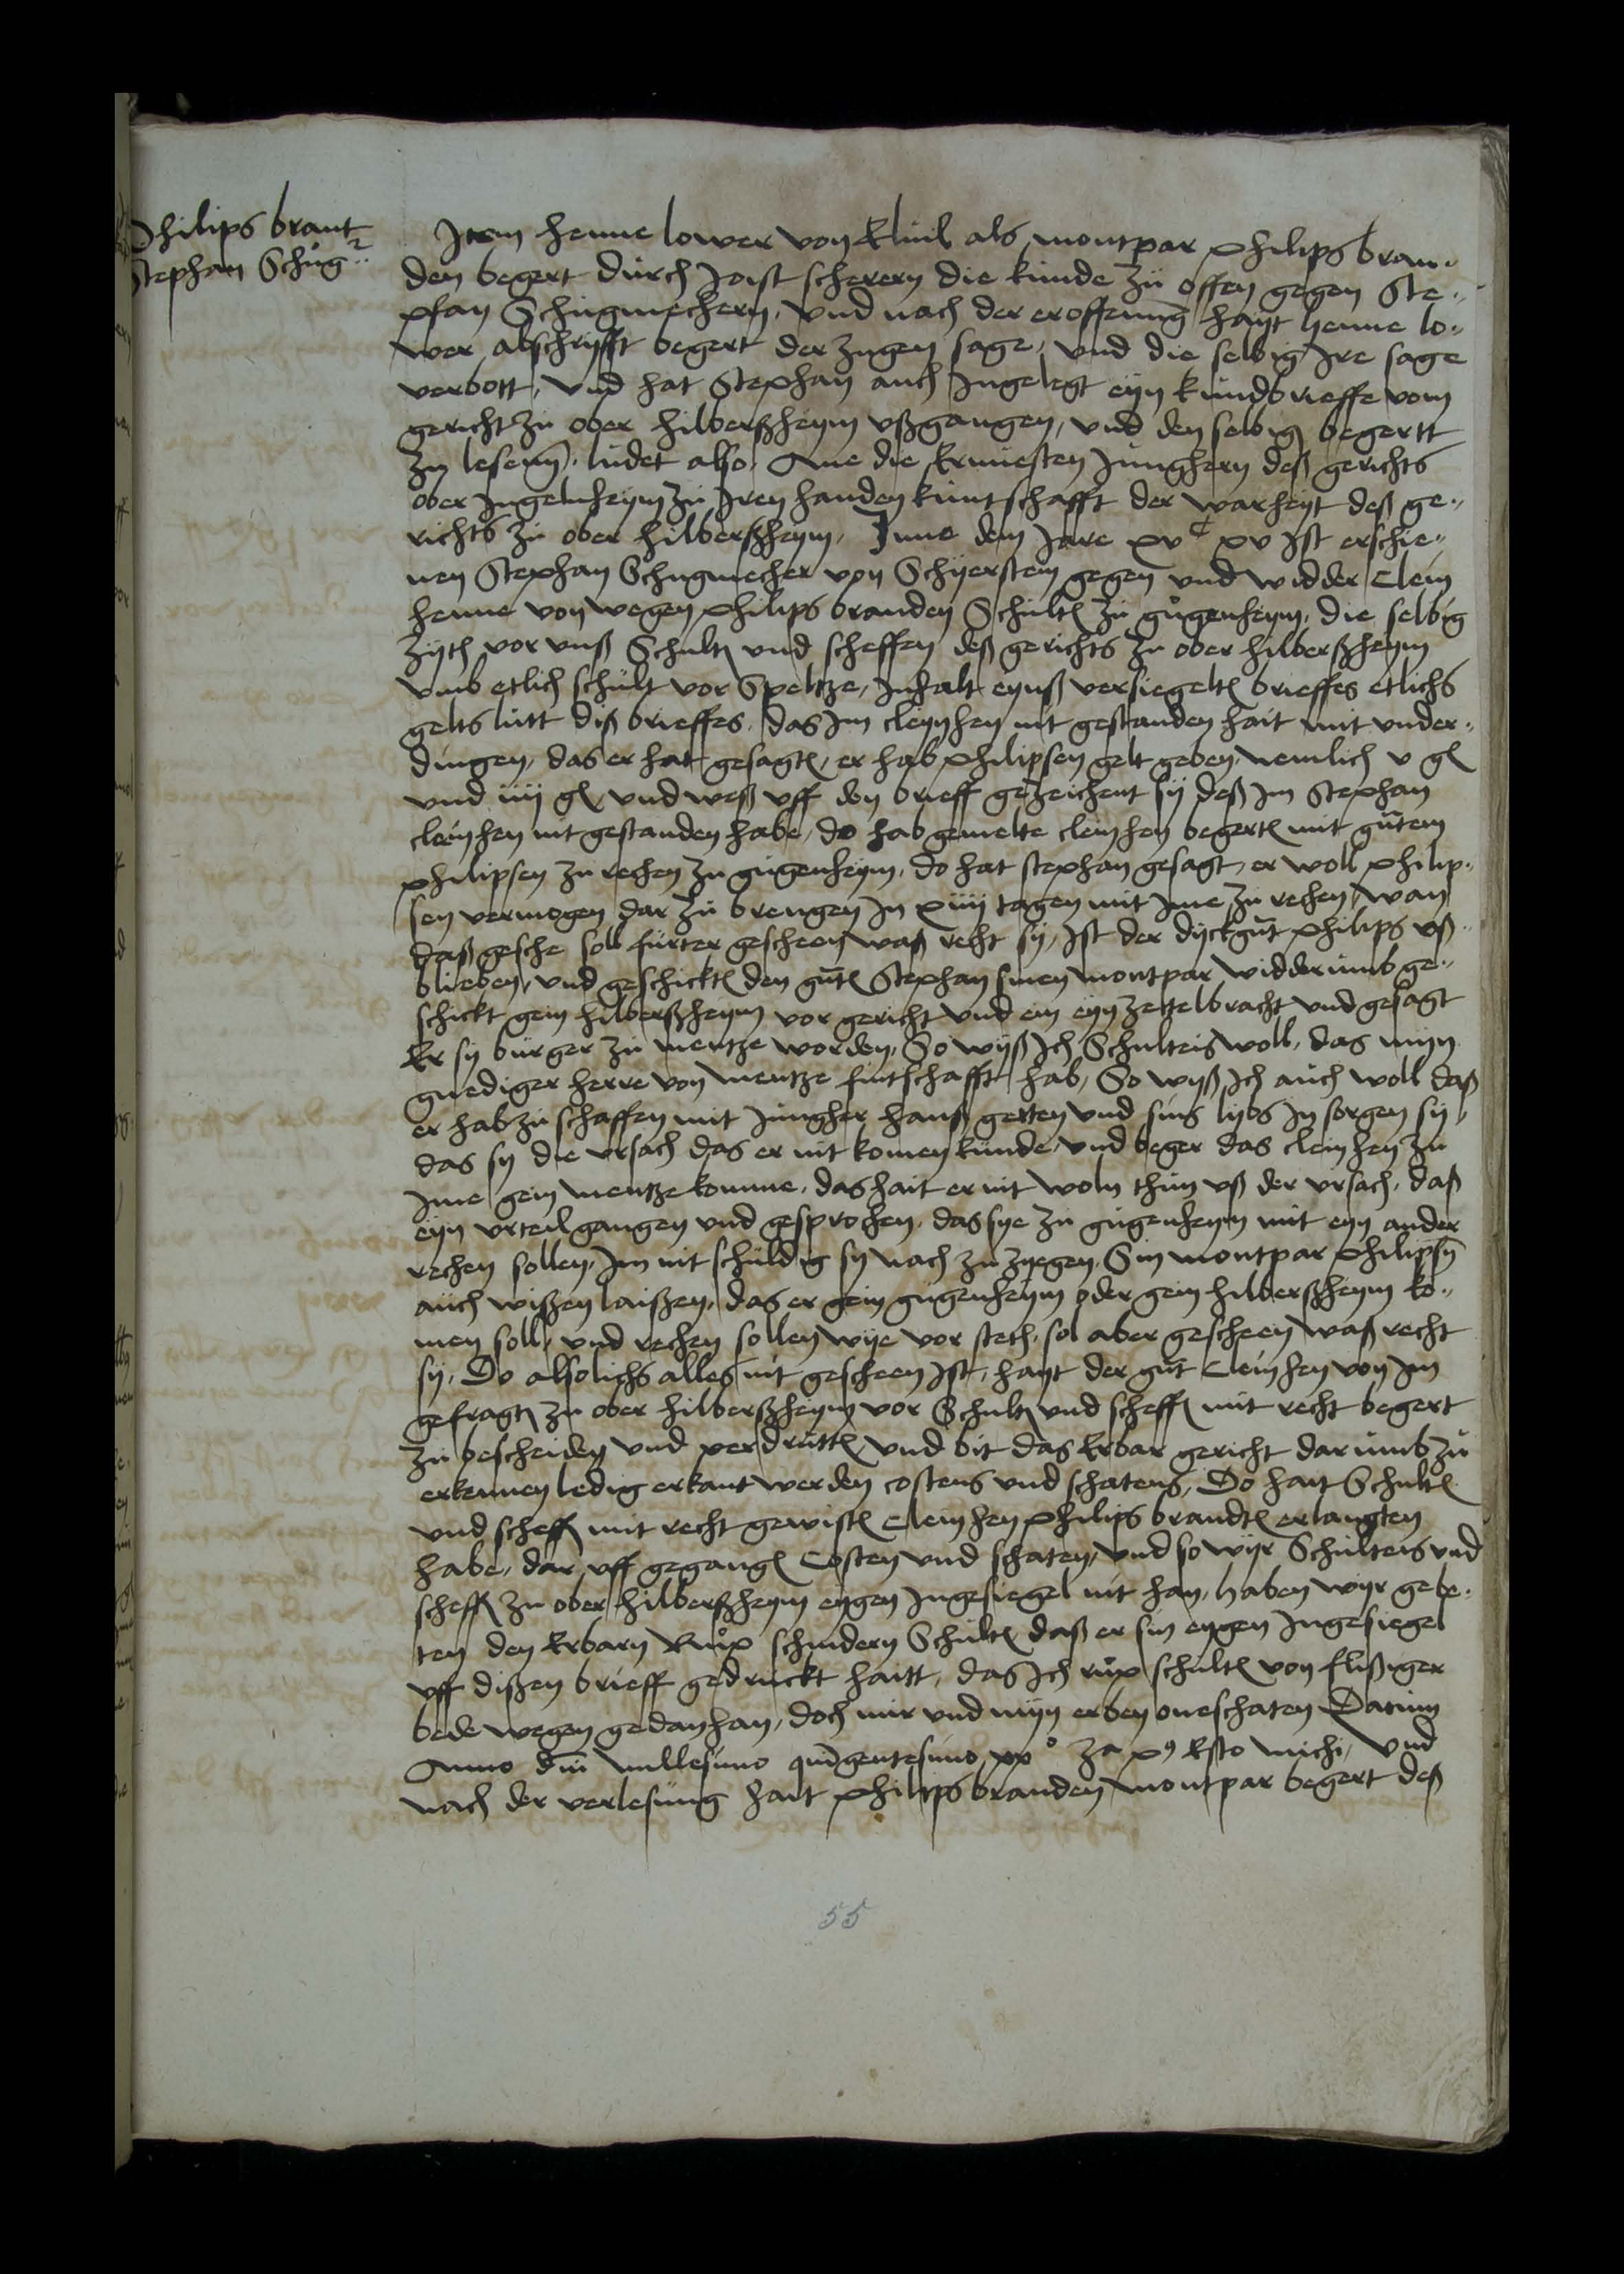 Philips brant
Stephan Schug
Item henne lower von Eltuil als montpar philips bran„
den begert durch Joist scherern die kunde zu offen gegen Ste„
phan Schugmechern, vnd nach der eroffenung hayt henne lo„
wer abschryfft begert der zugen sage, vnd die selbig Jre sage
verbott, vnd hat Stephan auch Jngelegt eyn kundbrieffe vom
gericht zu ober hilberßheym vßgangen, vnd den selbig begertt
zu lesenn, ludet also. Ane die Ernuesten Junghern deß gerichts
ober Jngelnheym zu Jren handen kuntschafft der warheyt deß ge„
richts zu ober hilberßheym, Jnne dem Jare xvc xv Jst erschie„
nen Stephan Schugmecher von Schyerstein gegen vnd widder Clein
henne von wegen philips branden Schult zu gugenheym, die selbig
zyth vor vnß Schult vnd scheffen deß gerichts zu ober hilberßheym
vmb etlich schult vor Speltze, Jnhalt eynß versiegelt brieffes etlichs
gelts lutt diß brieffes, das Jm cleynhen nit gestanden hait mit vnder„
dingen, das er hat gesagt, er hab philipsen gelt geben, nemlich v gl
vnd iiij gl vnd weß vff den brieff gezeichent sy deß Jm Stephan
cleinhen nit gestanden habe, do hab gemelte cleinhen begert mit gutem
philipsen zu rechen zu gugenheym, do hat stephan gesagt, er woll philip„
sen vermogen dar zu brengen Jn xiiij tagen mit Jme zu rechen, wan
daß gesche soll furter gescheen waß recht sy, Jst der dyckgut philips vß„
blieben, vnd geschickt den gut Stephan sinen montpar widderumb ge„
schickt gein hilberßheym vor gericht vnd ein eyn zettelbracht vnd gesagt
Er sy burger zu mentze worden, So wyß Jch Schulteis woll, das myn
gnediger herre von mentze fintschafft hab, So wyß Jch auch woll daß
er hab zu schaffen mit Jungher hanß getten vnd sins lybs Jn sorgen sy,
das sy die vrsach das er nit komen kunde, vnd beger das cleinhen zu
Jme gein mentze komme, das hait er nit woln thun vß der vrsach, daß
eyn vrteil gangen vnd gesprochen, das sye zu gugenheym mit eyn ander
rechen sollen, Jm nit schuldig sy nach zu zyegen, Sin montpar philipsn
auch wißen laißen, das er gein gugenheym oder gein hilberßheym ko„
men soll, vnd rechen sollen wye vor steth, sol aber gescheen waß recht
sy, Do alsolichs alles nit gescheen Jst, hayt der gut Cleinhen von Jm
gefragt zu ober hilberßheym vor Schult vnd scheff mit recht begert
zu bescheiden vnd verdrutt, vnd bit das Erbar gericht darumb zu
erkennen ledig erkant werden costens vnd schatens, Do hait Schult
vnd scheff mit recht gewist Cleinhen philips brandt erlangten
habe, dar vff gegang Costen vnd schaten, vnd so wyr Schulteis vnd
scheff zu ober hilberßheym eygen Jngesiegel nit han, haben wyr gebe„
ten den Erbarn Rup schnidern Schult daß er sin eygen Jngesiegel
vff dißen brieff gedruckt haitt, das Jch rup schult von flißiger
bede wegen gedan han, doch mir vnd myn erben oneschaten Datum
Anno dni millesimo quingentesimo xxo 3a p9 Esto michi, Vnd
nach der verlesung hait philips branden montpar begert deß
55